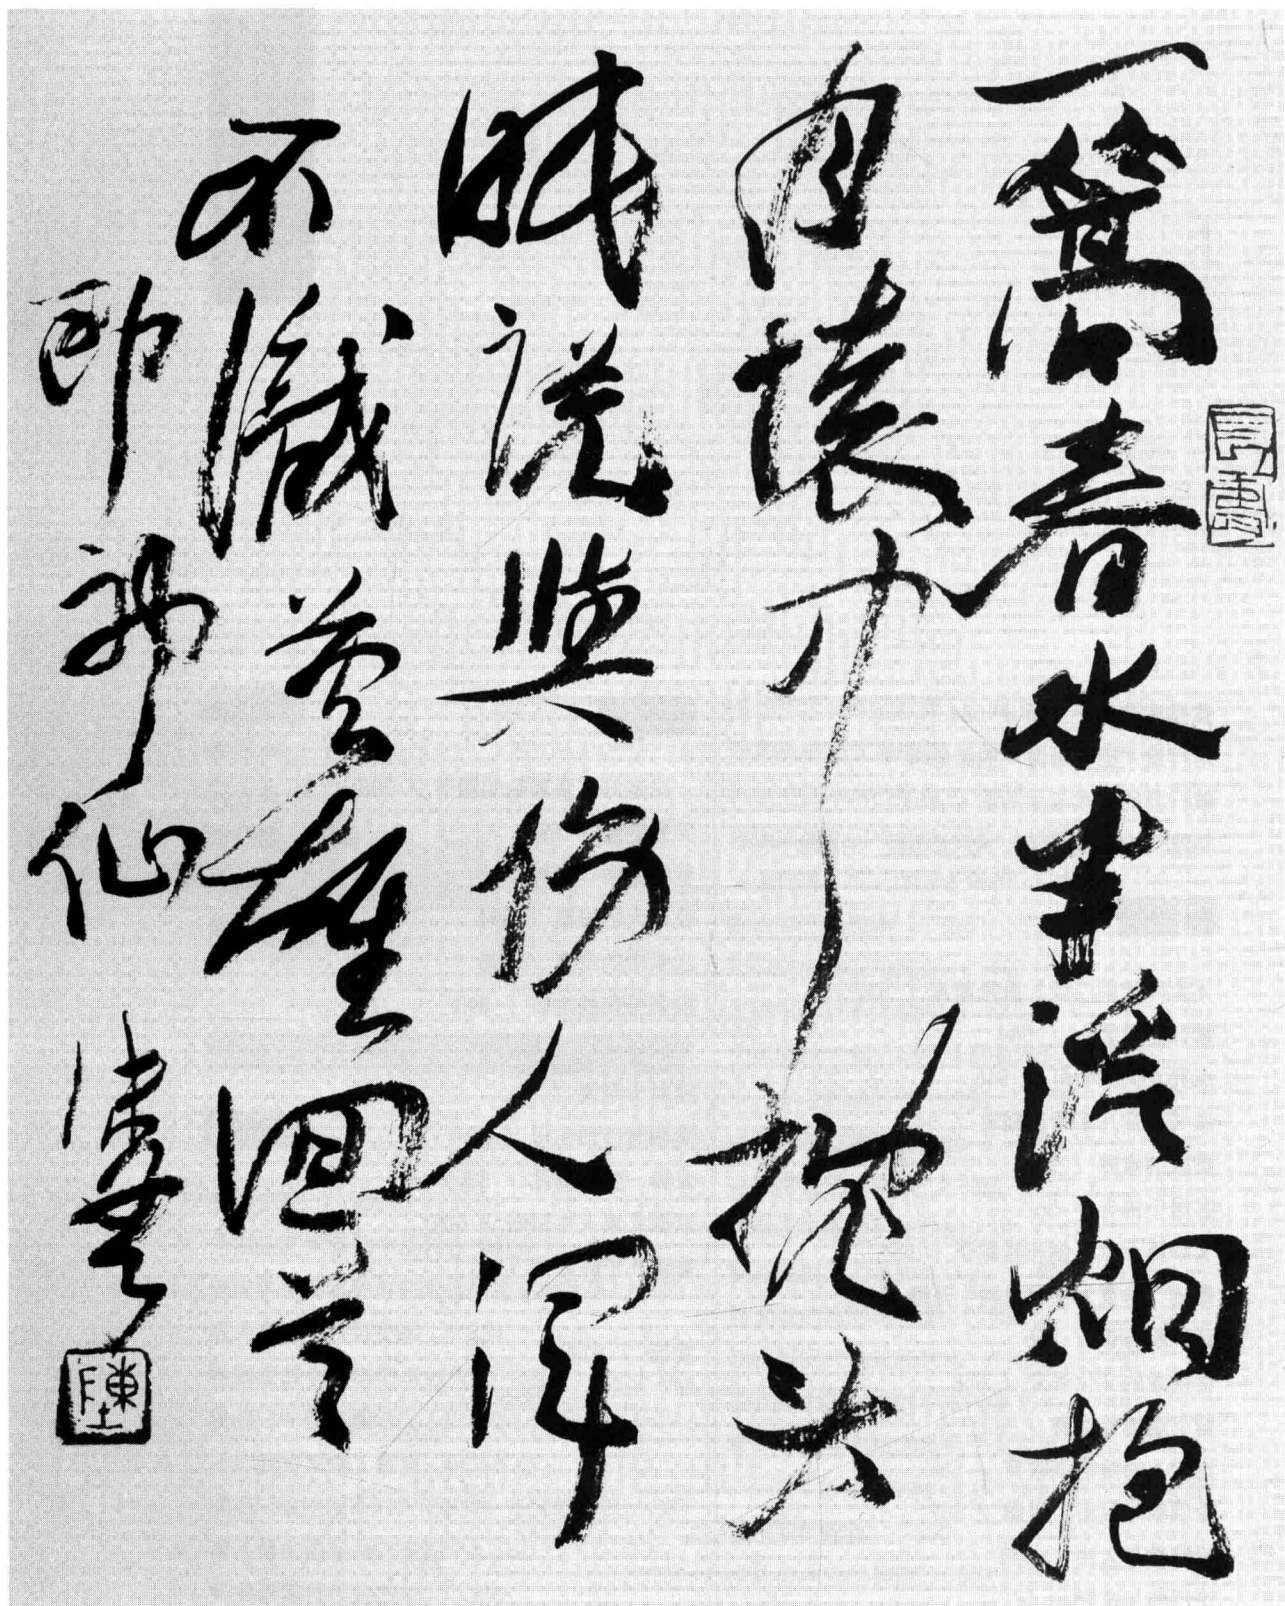 一篙春水半溪烟抱
月懷中枕斗
眠説與傍人渾
不識英雄回首
即神仙